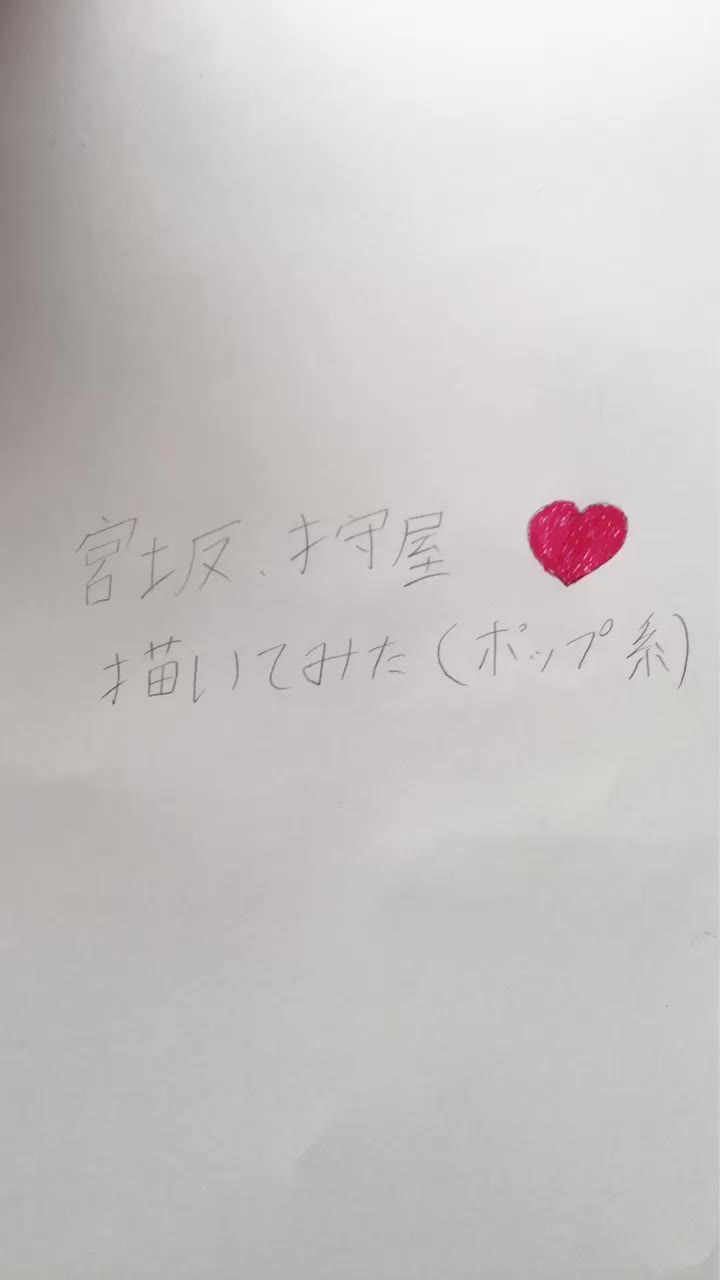 宮坂、狩屋
描いてみた(ポップ系)